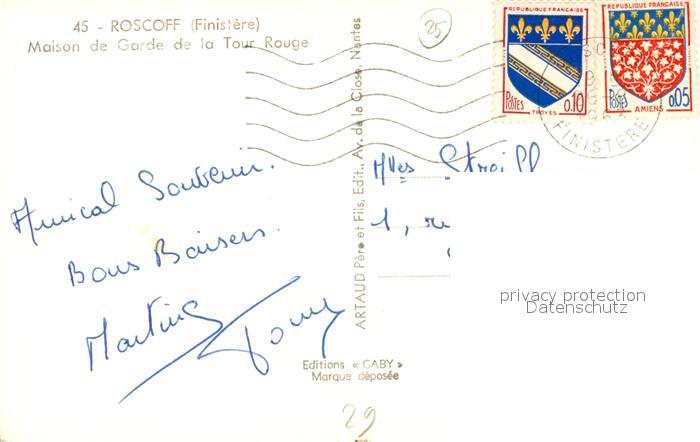 45 - ROSCOFF (Finistère)
Maison de Garde de la Tour Rouge
25
REPUBLIQUE FRANÇAISE
POSTES
0.10
TROYES
REPUBLIQUE FRANÇAISE
POSTES
0.05
AMIENS
FINISTERE
Amical Souvenir.
Bons Baisers.
Martine
ARTAUD Père et Fils, Edit., Av. de la Close, Nantes
1, ru
privacy protection
Datenschutz
Editions « GABY »
Marque déposée
29